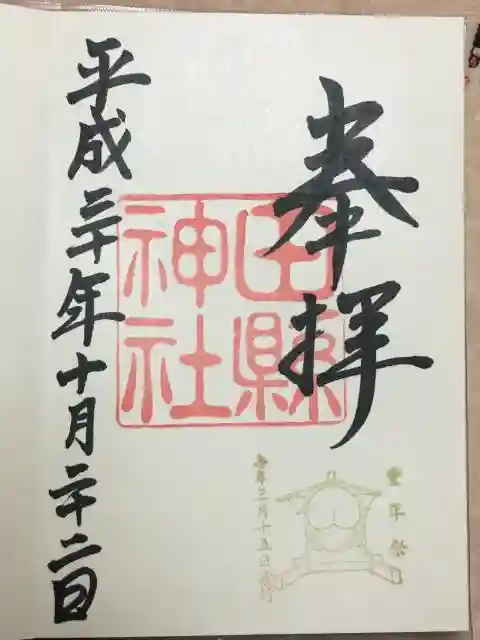 奉拝
田縣
神社
豊年祭
毎年三月十五日斎行
平成三十年十月二十二日